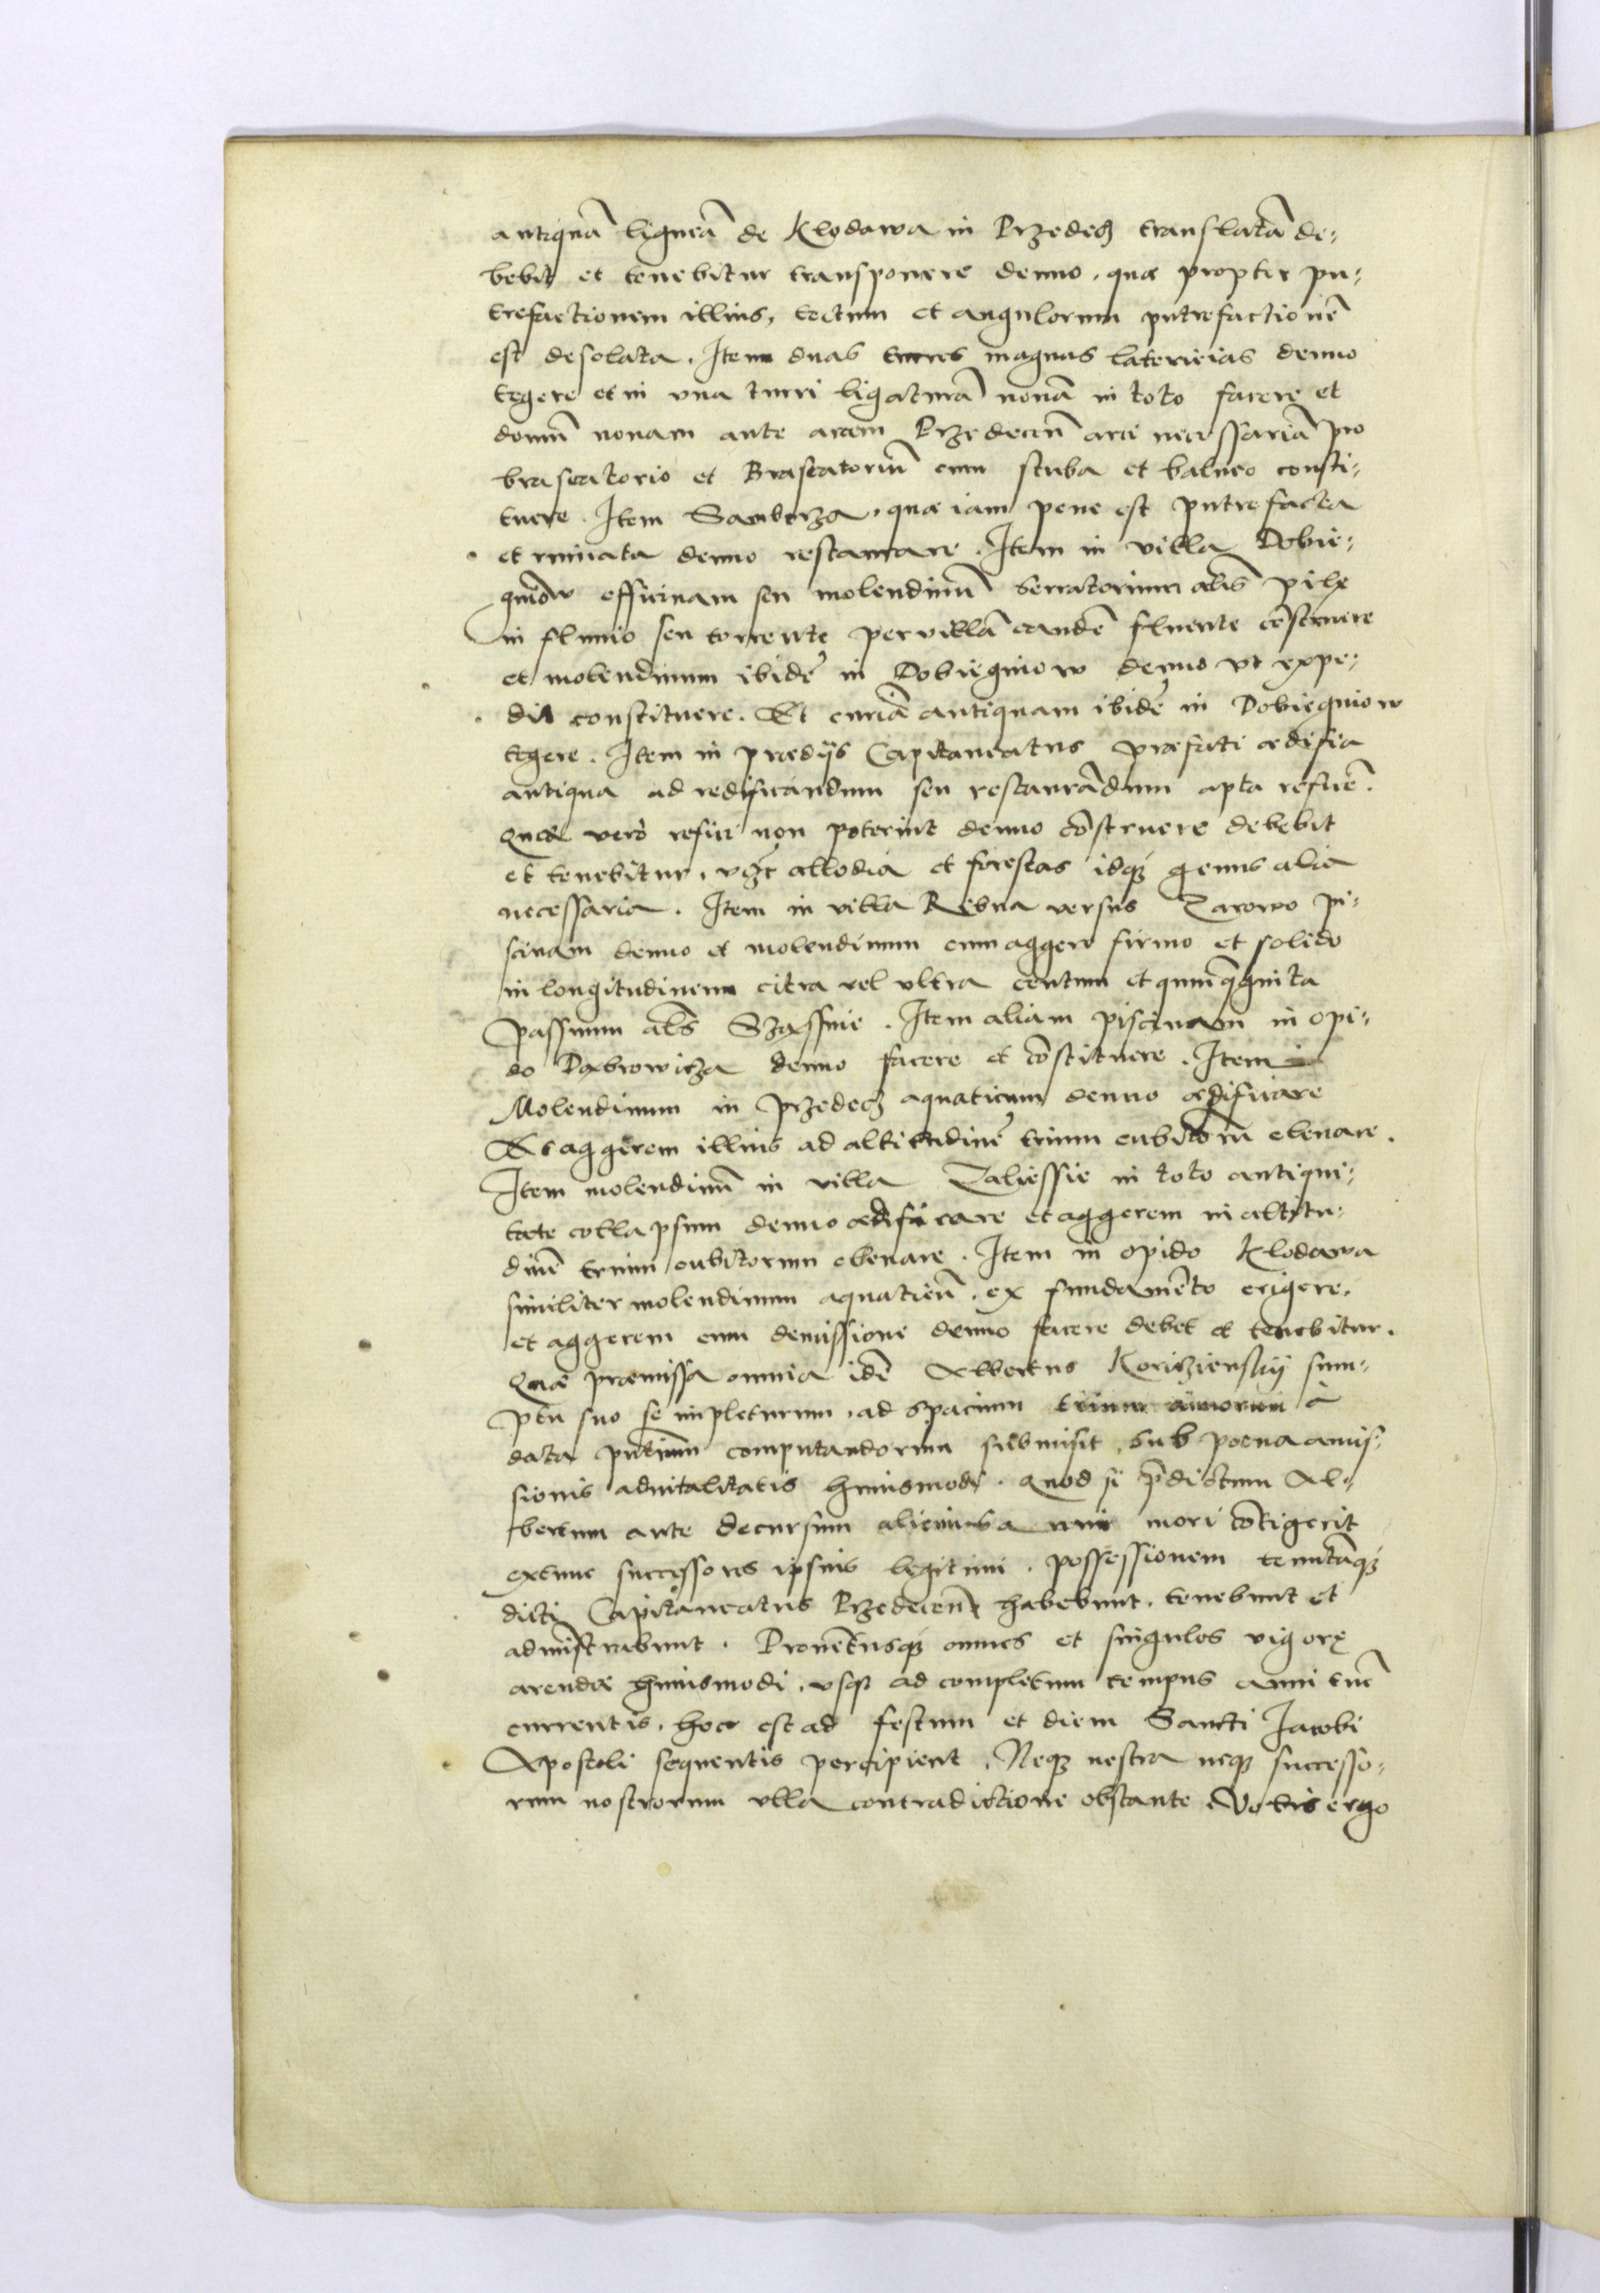 antiquā ligneā de Klodawa in Przedecz translatā de-
bebit et tenebitur transponere denuo, quæ propter pu-
trefactionem illius, tectum et angulorum putrefactionē
est desolata. Item duas turres magnas latericias denuo
tegere et in una turri ligaturā nouā in toto facere et
domū nouam ante arcem Przedecen̄ arci necessariā pro
braseatorio et Braseatoriū cum stuba et balneo consti-
tuere. Item quæ iam pene est putrefacta
et ruinata denuo restaurare. Item in villa Dobie-
gniow officinam seu molendinū serratorium al̄s pilę
in fluuio seu torrente per villā eandē fluente cōstruere
et molendinum ibidē in Dobiegniow denuo vt expe-
dit constituere. Et curiā antiquam ibidē in Dobiegniow
tegere. Item in prædijs Capitaneatus præfati ædificia
antiqua ad redificandum seu restaurādum apta reficē.
Quæ verò refici non poterint denuo cōstruere debebit
et tenebitur, vȝt allodia et forestas idqȝ genus alia
necessaria. Item in villa Rebna versus Zarowo pi-
scinam denuo et molendinum cum aggere firmo et solido
in longitudinem citra vel vltra centum et quinquaginta
passuum al̄s Sząssnie. Item aliam piscinam in opi-
do Dąbrowicza denuo facere et cōstituere. Item
Molendinum in Przedecz aquaticum denuo ædificare
Et aggerem illius ad altitudinē trium cubitorū eleuare.
Item molendinū in villa Zaliessie in toto antiqui-
tate collapsum denuo ædificare et aggerem in altitu-
dinē trium cubitorum eleuare. Item in opido Klodawa
similiter molendinum aquaticū, ex fundamēto erigere,
et aggerem cum demissione denuo facere debet et tenebitur.
Quæ præmissa omnia idē Albertus Koriczienskij sum-
ptu suo se impleturum, ad spacium trium annorum à
data pñtium computandorum submisit, sub poena amis-
sionis aduitalitatis huiusmodi. Quod si p̄dictum Al-
bertum ante decursum alicuius anni mori cōtigerit
extunc successores ipsius legitimi, possessionem tenutāqȝ
dicti Capitaneatus Przedecen̄ habebunt, tenebunt et
administrabunt. Prouētusqȝ omnes et singulos vigorę
arendæ huiusmodi, vsqȝ ad completum tempus anni tūc
currentis, hoc est ad festum et diem Sancti Iacobi
Apostoli sequentis percipient, Neqȝ nostra neqȝ successo-
rum nostrorum vlla contradictione obstante. Vobis ergo